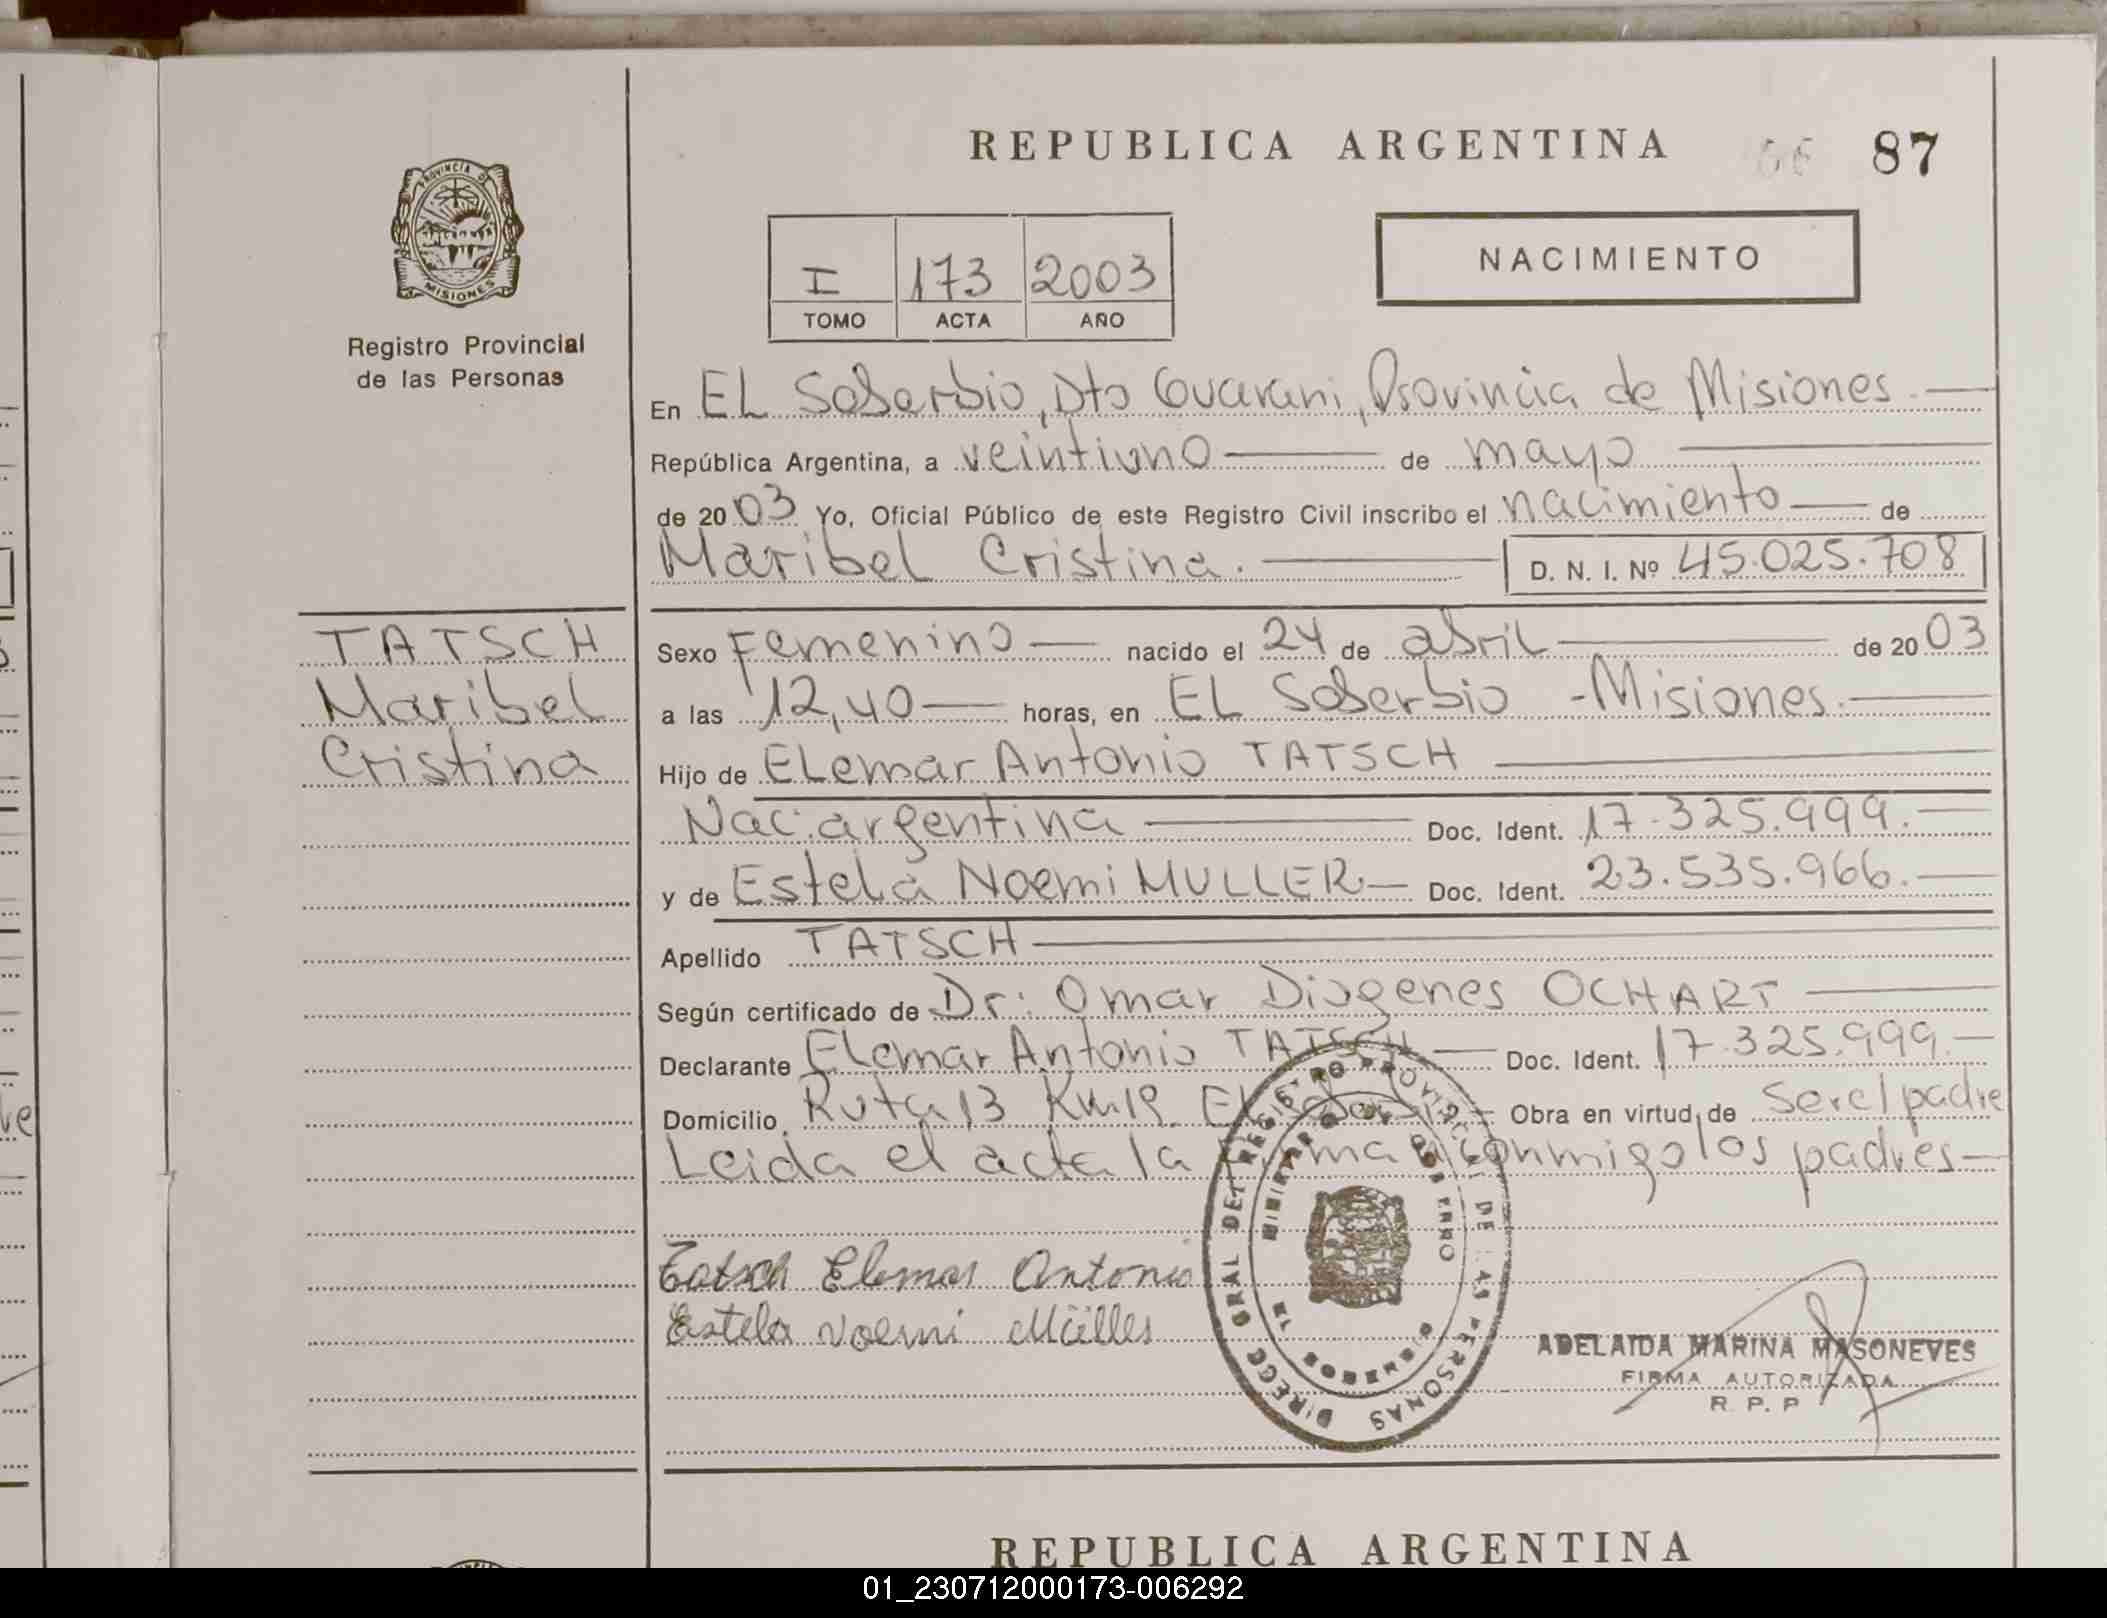 REPUBLICA ARGENTINA
87
PROVINCIA DE
MISIONES
Registro Provincial
de las Personas
I 173 2003
TOMO ACTA AÑO
NACIMIENTO
En EL Soberbio, Dto Guarani, Provincia de Misiones.
República Argentina, a veintiuno de mayo
de 2003 Yo, Oficial Público de este Registro Civil inscribo el nacimiento de
Maribel Cristina. D. N. I. Nº 45.025.708
TATSCH
Maribel
Cristina
Sexo Femenino nacido el 24 de abril de 2003
a las 12,40 horas, en EL Soberbio - Misiones.
Hijo de ELemar Antonio TATSCH
Nac: argentina Doc. Ident. 17.325.999.
y de Estela Noemi MULLER Doc. Ident. 23.535.966.
Apellido TATSCH
Según certificado de Dr: Omar Diogenes OCHART
Declarante Elemar Antonio TATSCH Doc. Ident. 17.325.999.
Domicilio Ruta 13 Km 19 El Obra en virtud de ser el padre
Leida el acta la conmigo los padres
Tatsch Elemar Antonio
Estela Noemi Müller
DIRECC GRAL DEL REGISTRO PROVINCIAL DE LAS PERSONAS
MINISTERIO DE GOBIERNO
MISIONES
ADELAIDA MARINA MASONEVES
FIRMA AUTORIZADA
R. P. P
REPUBLICA ARGENTINA
01_230712000173-006292